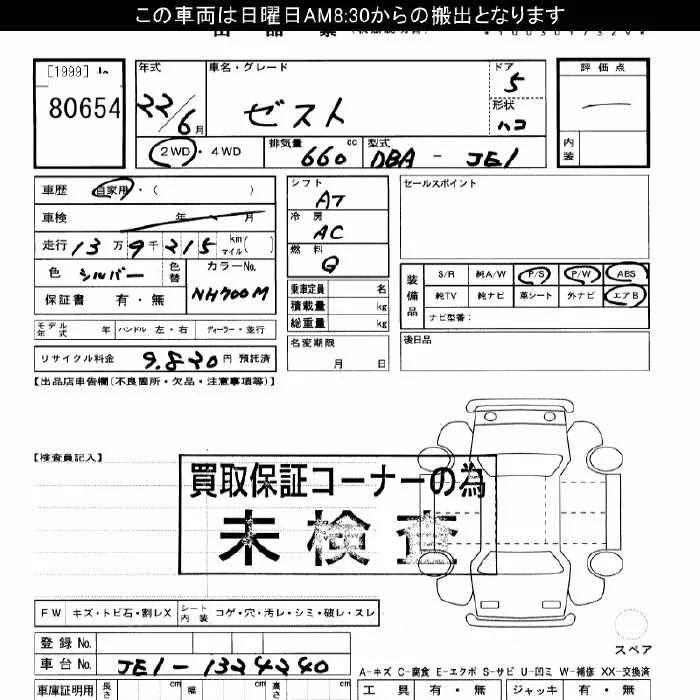 この車両は日曜日AM8:30からの搬出となります
[1999]
80654
年式
22/6月
2WD・4WD
車名・グレード
ゼスト
ドア
5
形状
ハコ
排気量
660 cc
型式
DBA - JE1
評価点
内装
車歴 自家用・( )
車検 年 月
走行 13万9千215 km マイル( )
色 シルバー 色替
カラーNo.
NH700M
保証書 有・無
モデル年式 年 ハンドル 左・右 ディーラー・並行
リサイクル料金 9.820円 預託済
シフト
AT
冷房
AC
燃料
G
乗車定員 名
積載量 kg
総重量 kg
名変期限
月 日
セールスポイント
装備品
S/R 純A/W P/S P/W ABS
純TV 純ナビ 革シート 外ナビ エアB
ナビ型番:
後日品
【出品店申告欄(不良箇所・欠品・注意事項等)】
【検査員記入】
買取保証コーナーの為
未検査
FW キズ・トビ石・割レX シート内装 コゲ・穴・汚レ・シミ・破レ・スレ
スペア
登録No.
車台No. JE1-1324240
A-キズ C-腐食 E-エクボ S-サビ U-凹ミ W-補修 XX-交換済
車庫証明用 長さ cm 幅 cm 高さ cm
工具 有・無 ジャッキ 有・無